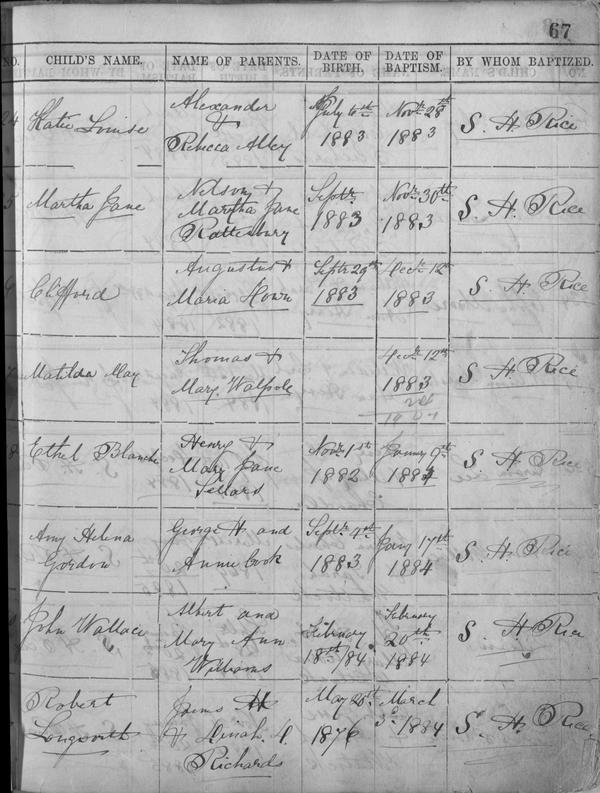 67
NO. CHILD'S NAME. NAME OF PARENTS. DATE OF BIRTH. DATE OF BAPTISM. BY WHOM BAPTIZED.
Katie Louise
Alexander
&
Rebecca Alley
July 6th
1883
Novr 28th
1883
S. H. Rice
Martha Jane
Nelson &
Martha Jane
Rattenbury
Septr
1883
Novr 30th
1883
S. H. Rice
Clifford
Augustus &
Maria Howe
Septr 29th
1883
Decr 12th
1883
S. H. Rice
Matilda May
Thomas &
Mary Walpole
Decr 12th
1883
S. H. Rice
Ethel Blanche
Henry &
Mary Jane
Sellars
Novr 1st
1882
January 9th
1884
S. H. Rice
Amy Helena
Gordon
George H. and
Annie Cook
Septr 4th
1883
Jany 17th
1884
S. H. Rice
John Wallace
Albert and
Mary Ann
Williams
February
18th/84
February
20th
1884
S. H. Rice
Robert
Longworth
James H
& Dinah D.
Richards
May 20th
1876
March
1884
S. H. Rice